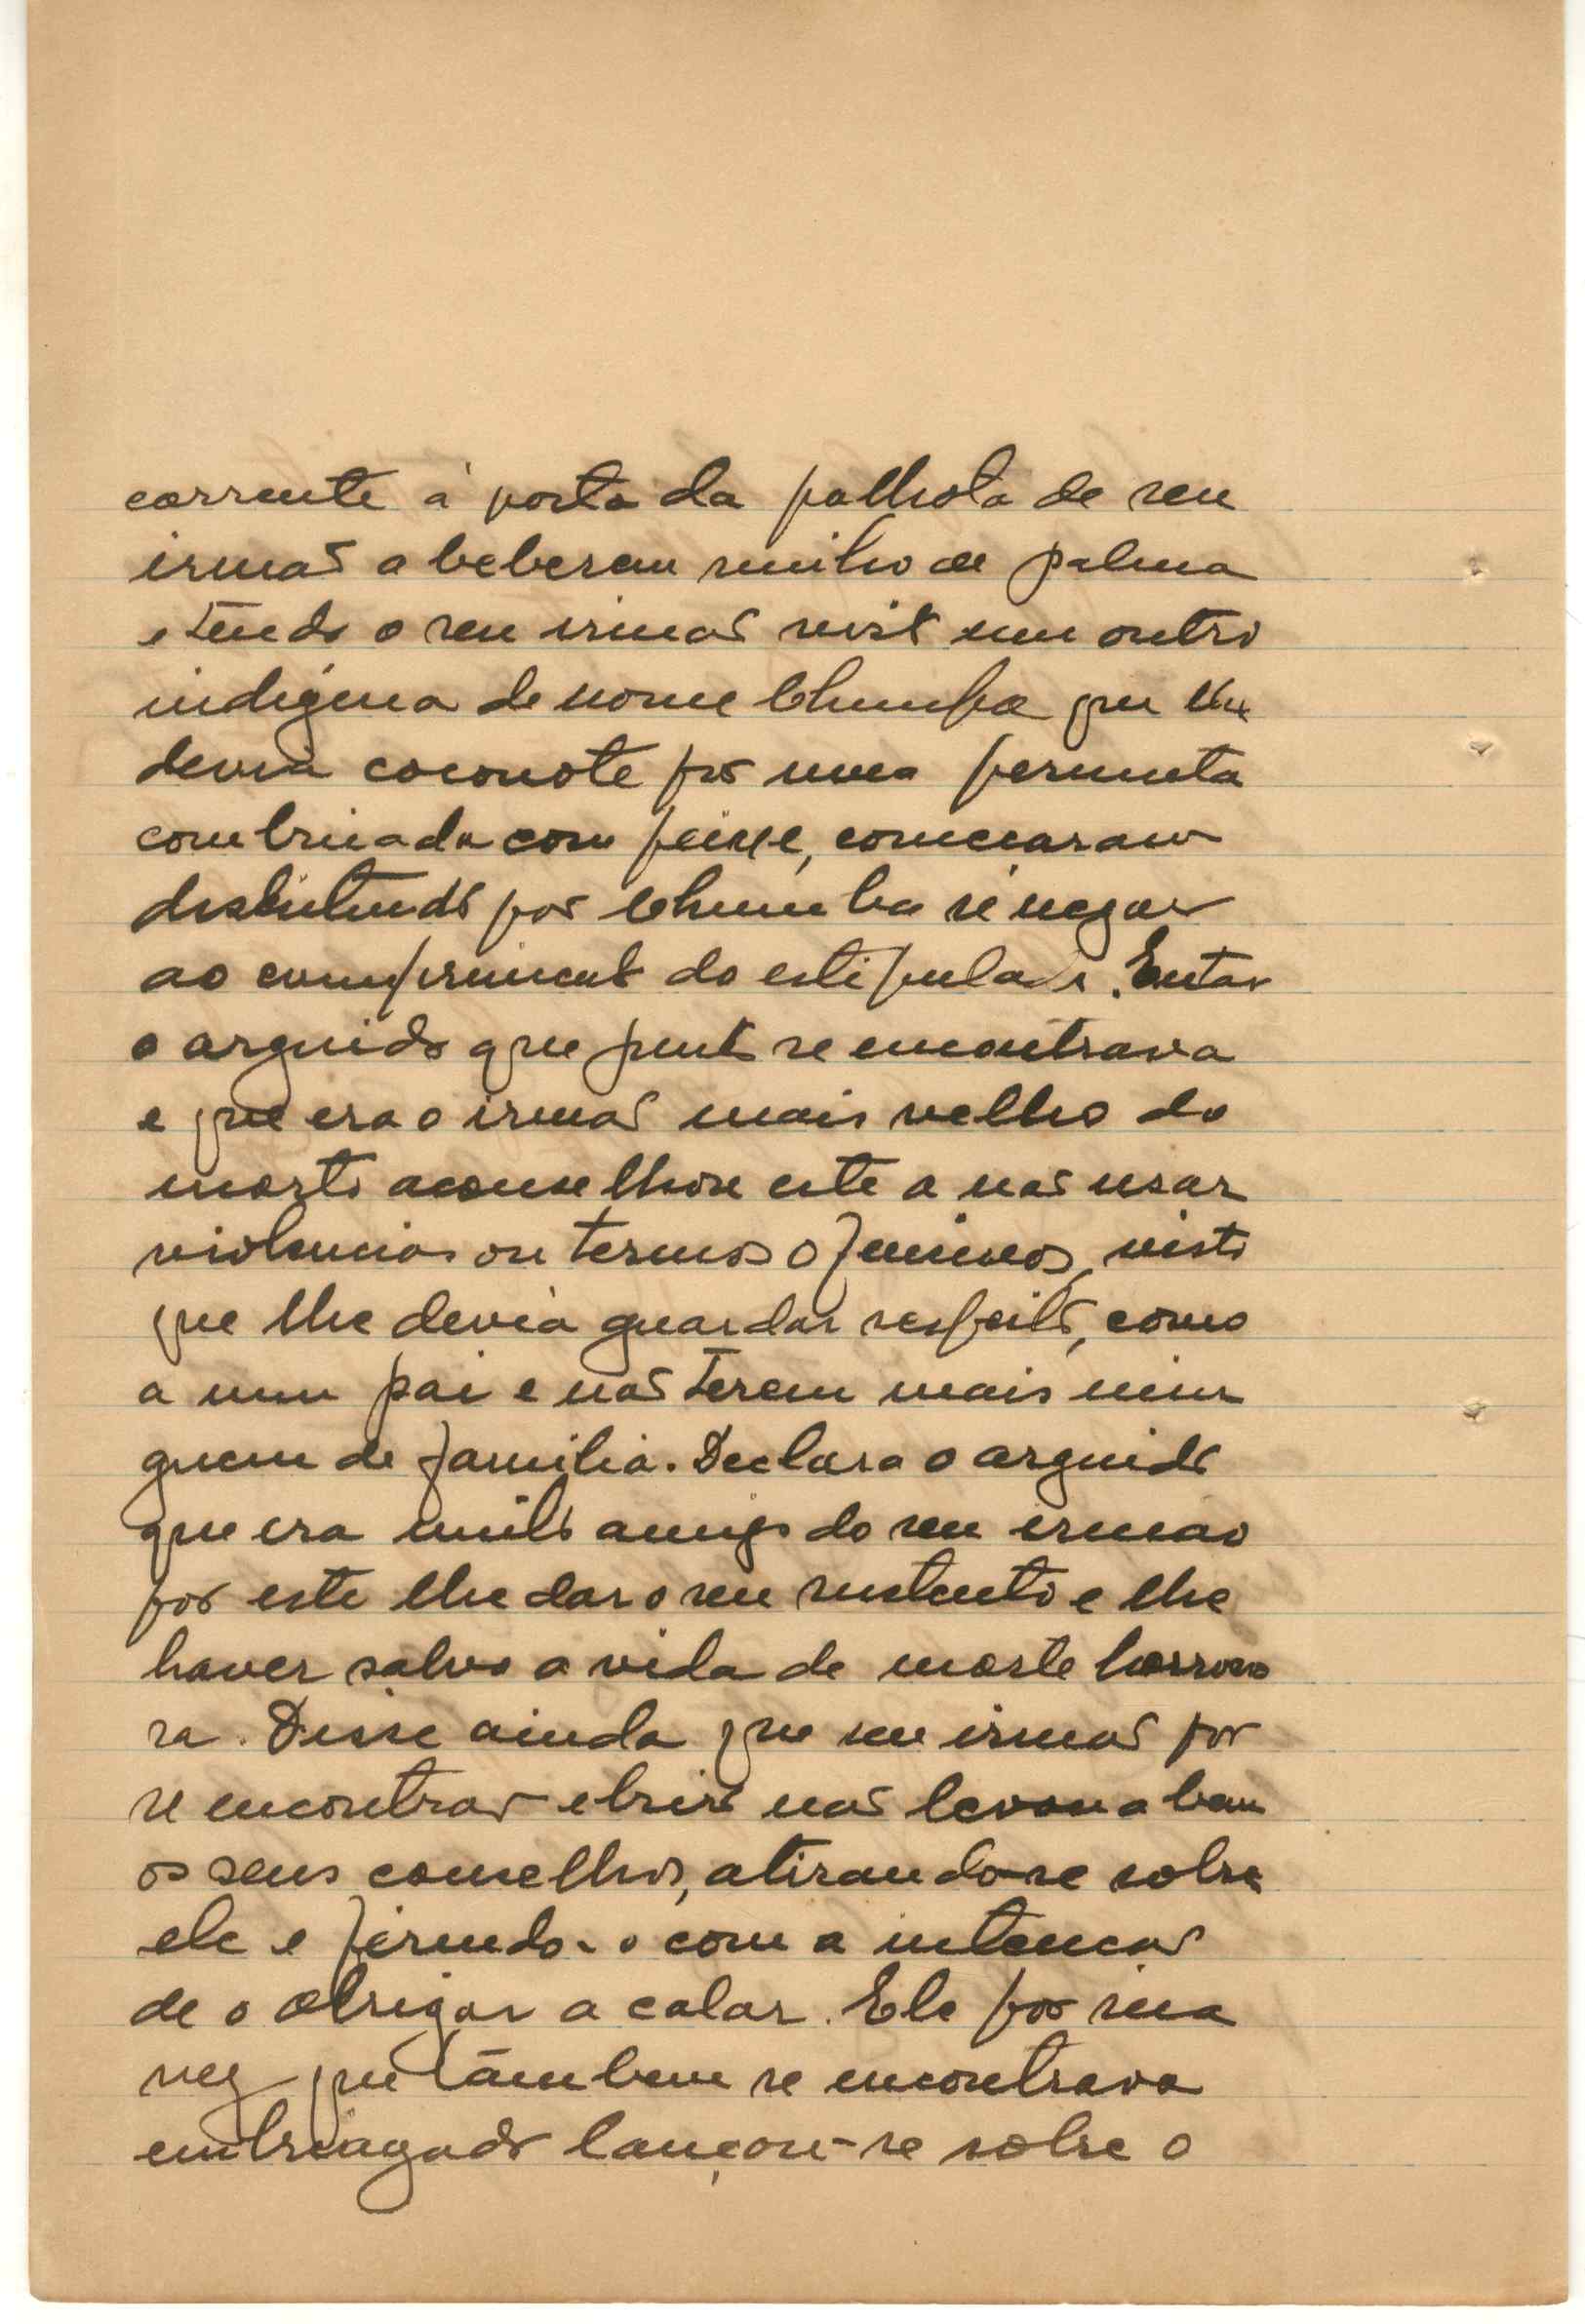 corrente á porta da palhota de seu
irmão a beberem vinho de palma
e tendo o seu irmão visto um outro
indigena de nome Chumba que lhe
devia coconote por uma permuta
combinada com peixe, começaram
discutindo por Chumba se negar
ao comprimento do estipulado. Então
o arguido que junto se encontrava
e que era o irmão mais velho do
morto aconselhou este a não usar
violencias ou termos ofensivos, visto
que lhe devia guardar respeito, como
a um pai e não terem mais nin
guem de familia. Declara o arguido
que era muito amigo do seu irmão
por este lhe dar o seu sustento e lhe
haver salvo a vida de morte horroro
sa. Disse ainda que seu irmão por
se encontrar ebrio não levou a bem
os seus conselhos, atirando-se sobre
ele e ferindo-o com a intenção
de o obrigar a calar. Ele por sua
vez que tâmbem se encontrava
embriagado lançou-se sobre o